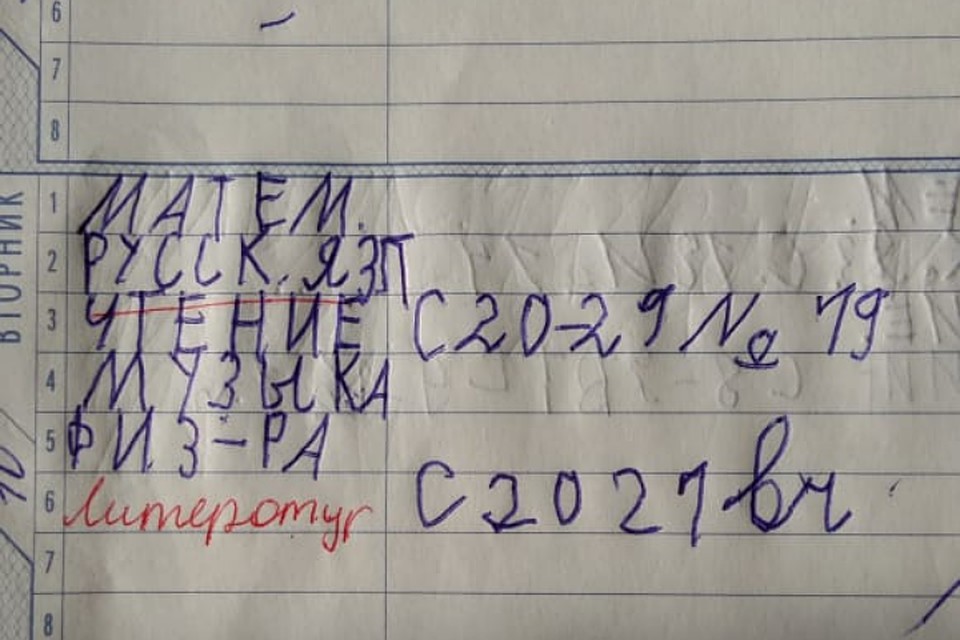 6 -
7
8
ВТОРНИК
1 МАТЕМ.
2 РУССК. ЯЗП
3 ЧТЕНИЕ С20-29 № 19
4 МУЗЫКА
5 ФИЗ-РА
6 Литеротур С2021вч
7
8
10